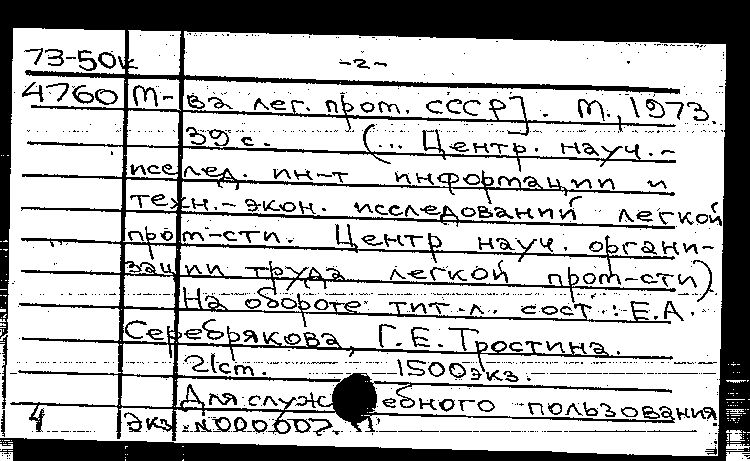 73-50к -2-
4760 м-ва лег. пром. СССР]. М., 1973.
39 с. (... Центр. науч.-
исслед. ин-т информации и
техн.-экон. исследований легкой
пром-сти. Центр науч. органи-
зации труда легкой пром-сти)
На обороте тит. л. сост.: Е.А.
Серебрякова, Г.Е. Тростина.
21 см. 1500 экз.
Для служебного пользования
4 экз. N000007.